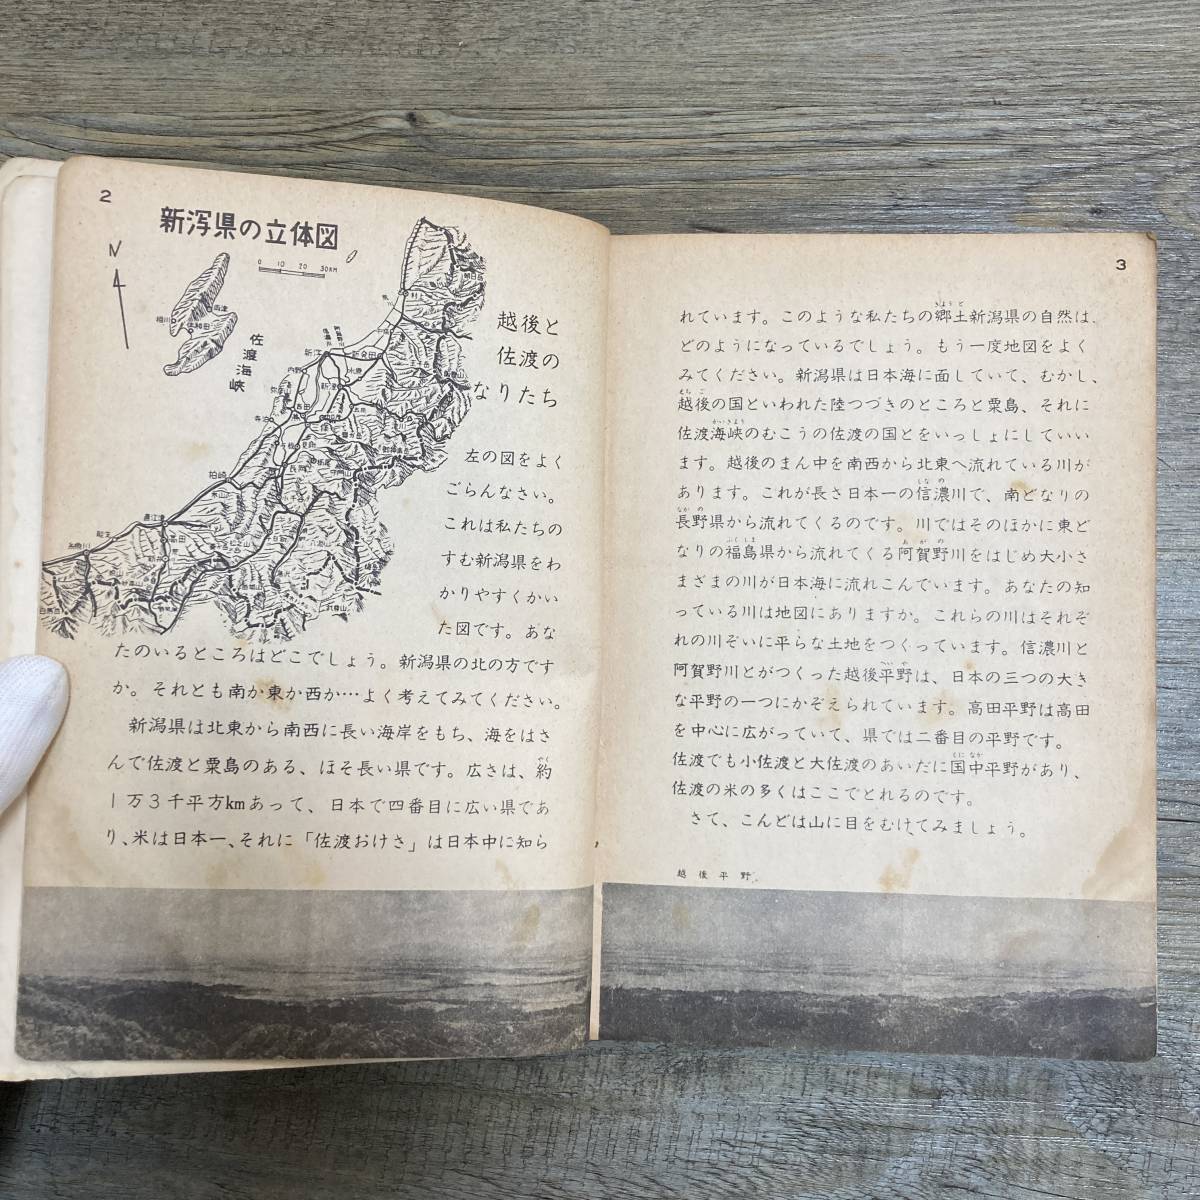 2
新潟県の立体図
N
0 10 20 30KM
佐渡海峡
両津
相川
佐和田
新潟
新発田
内野
水原
新津
寺泊
柏崎
直江津
高田
糸魚川
越後と
佐渡の
なりたち
左の図をよく
ごらんなさい。
これは私たちの
すむ新潟県をわ
かりやすくかい
た図です。あな
たのいるところはどこでしょう。新潟県の北の方です
か。それとも南か東か西か…よく考えてみてください。
新潟県は北東から南西に長い海岸をもち、海をはさ
んで佐渡と粟島のある、ほそ長い県です。広さは、約
1万3千平方kmあって、日本で四番目に広い県であ
り、米は日本一、それに「佐渡おけさ」は日本中に知ら
3
れています。このような私たちの郷土新潟県の自然は、
どのようになっているでしょう。もう一度地図をよく
みてください。新潟県は日本海に面していて、むかし、
越後の国といわれた陸つづきのところと粟島、それに
佐渡海峡のむこうの佐渡の国とをいっしょにしていい
ます。越後のまん中を南西から北東へ流れている川が
あります。これが長さ日本一の信濃川で、南どなりの
長野県から流れてくるのです。川ではそのほかに東ど
なりの福島県から流れてくる阿賀野川をはじめ大小さ
まざまの川が日本海に流れこんでいます。あなたの知
っている川は地図にありますか。これらの川はそれぞ
れの川ぞいに平らな土地をつくっています。信濃川と
阿賀野川とがつくった越後平野は、日本の三つの大き
な平野の一つにかぞえられています。高田平野は高田
を中心に広がっていて、県では二番目の平野です。
佐渡でも小佐渡と大佐渡のあいだに国中平野があり、
佐渡の米の多くはここでとれるのです。
さて、こんどは山に目をむけてみましょう。
越後平野